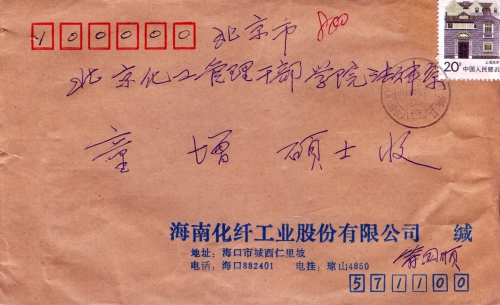 100000 北京市 800
北京化工管理干部学院法律系
童增 硕士 收
20分 中国人民邮政
海南化纤工业股份有限公司 缄
地址：海口市城西仁里坡
电话：海口882401 电挂：琼山4850
571100